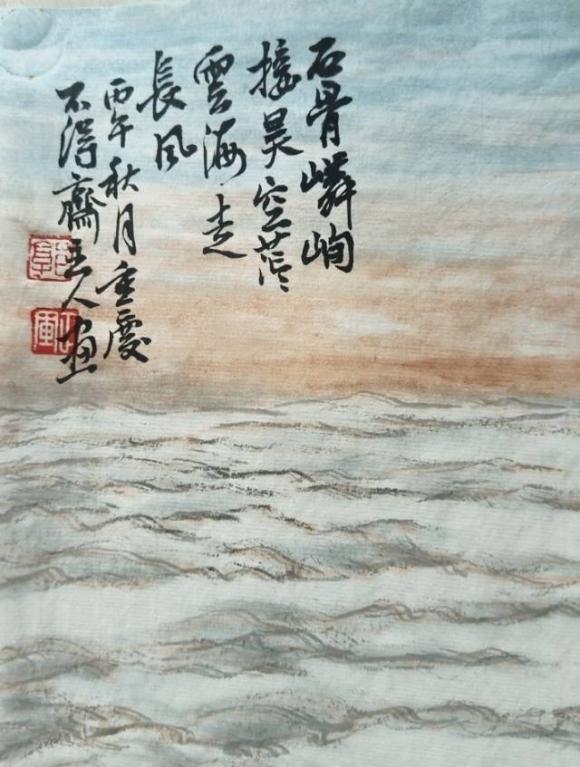 石骨嶙峋
接昊空茫
雲海走
長风
丙午秋月重慶
不浔齋主人画